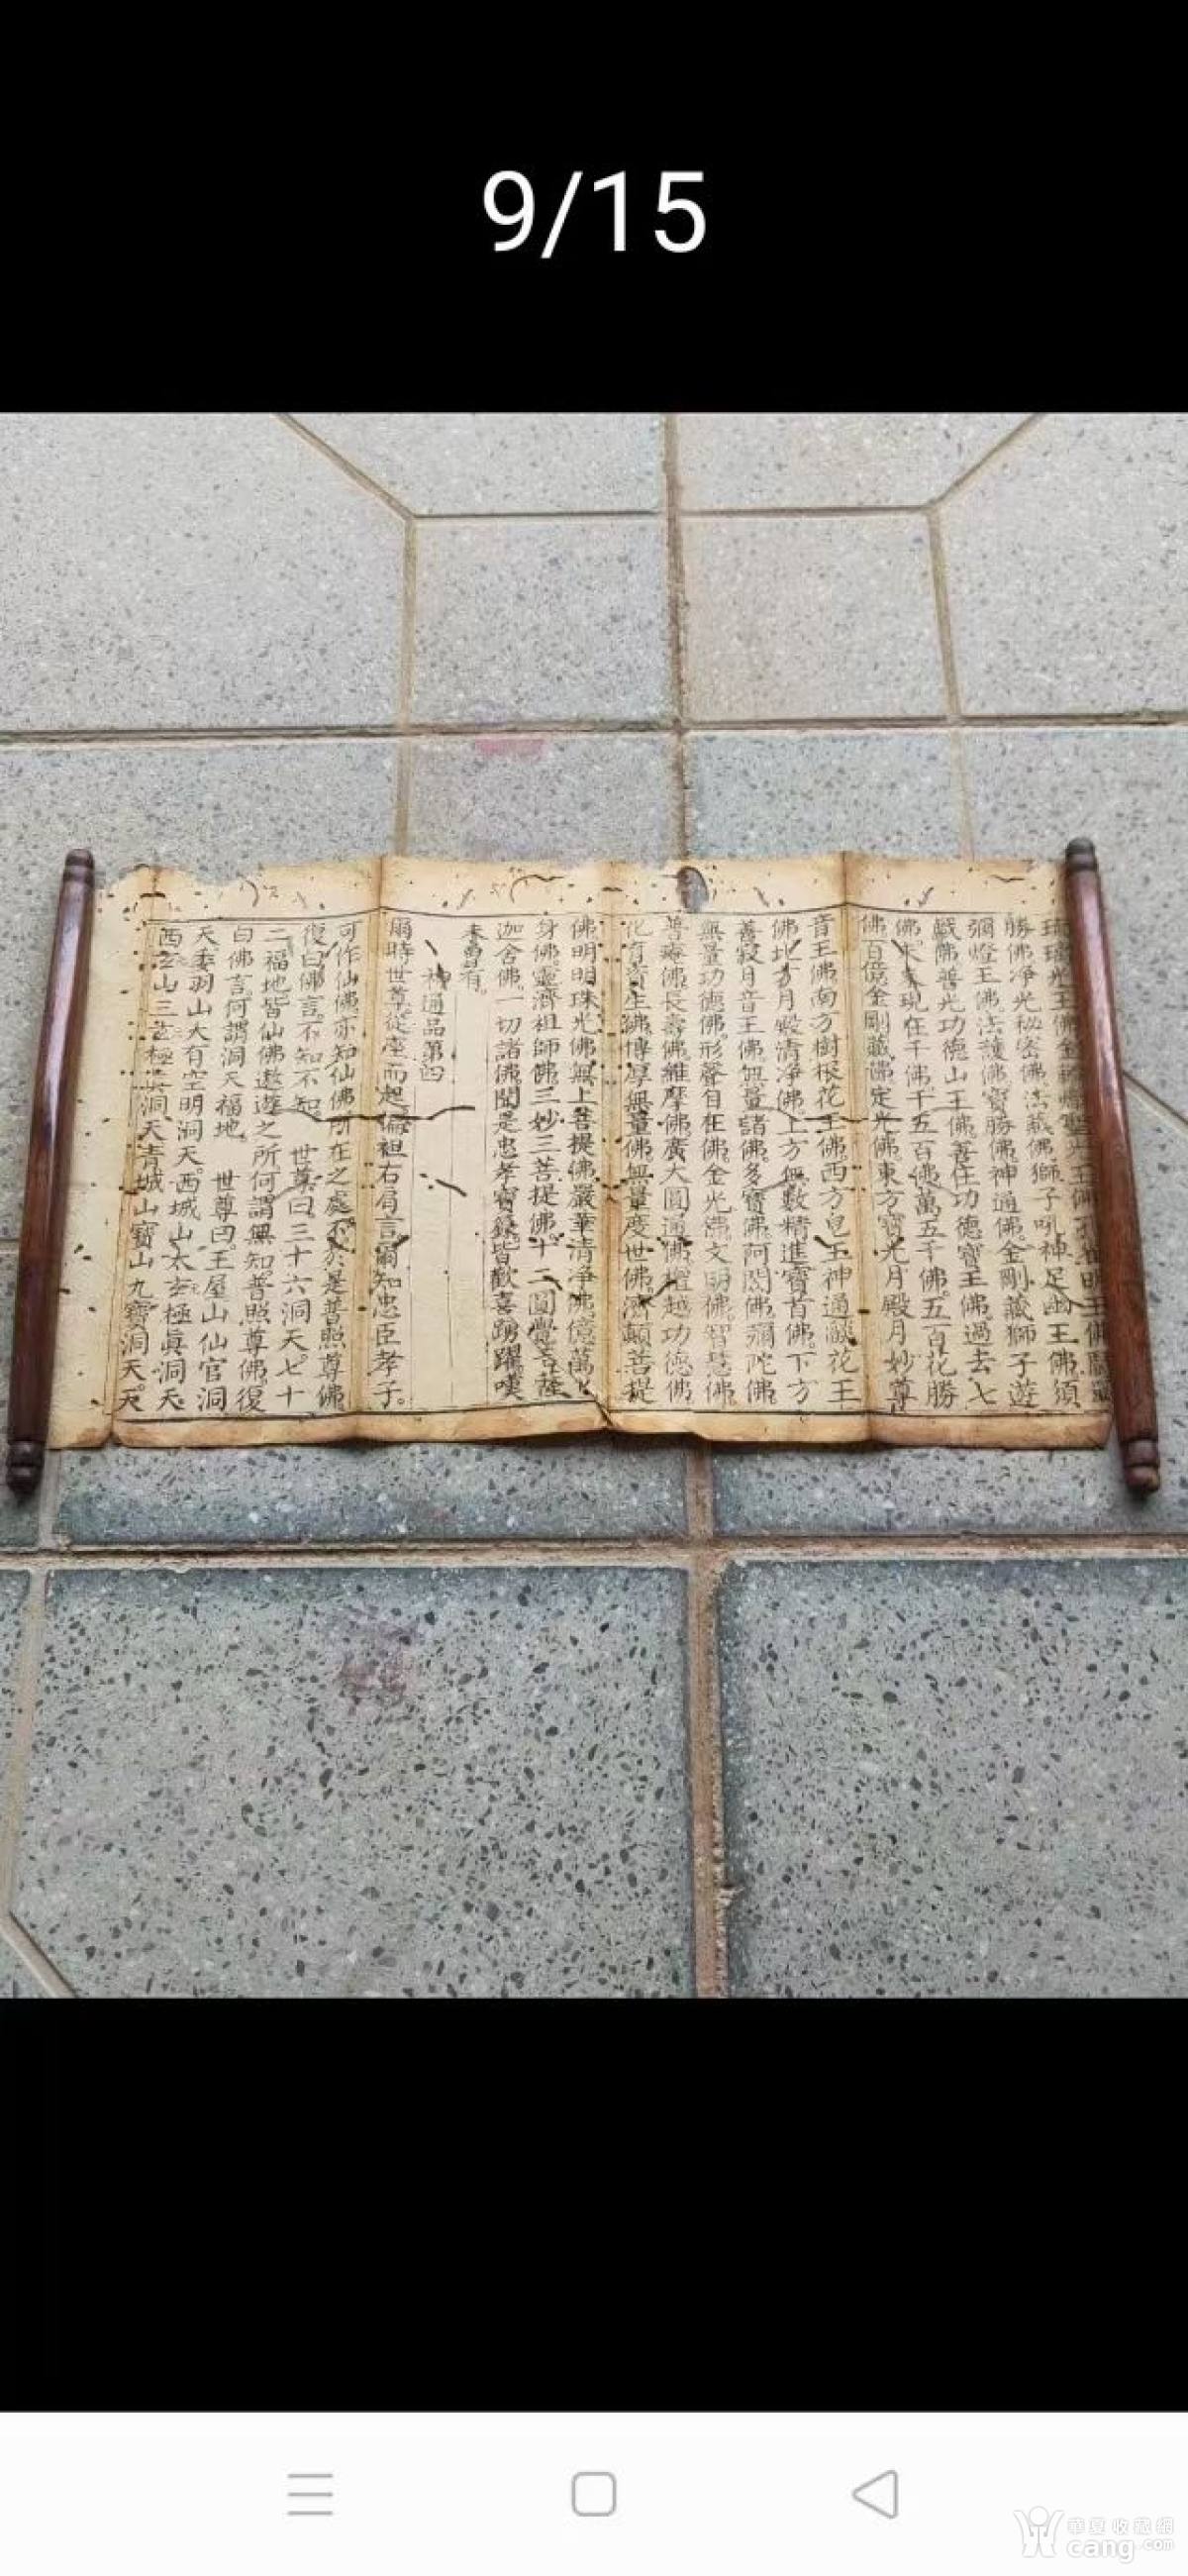 9/15
勝佛淨光秘密佛法藏佛獅子吼神足幽王佛須
彌燈王佛法護佛寶勝佛神通佛金剛藏獅子遊
戲佛普光功德山王佛善住功德寶王佛過去七
佛未來現在千佛千五百佛萬五千佛五百花勝
佛百億金剛藏佛定光佛東方寶光月殿月妙尊
音王佛南方樹根花王佛西方皂王神通燄花王
佛北方月殿清凈佛上方無數精進寶首佛下方
善寂月音王佛無量諸佛多寶佛阿閦佛彌陀佛
無量功德佛形聲自在佛金光佛文明佛智慧佛
尊佛長壽佛維摩佛廣大圓通佛檀越功德佛
化育佛博厚無量佛無量度世佛濟顛菩提
佛明明珠光佛無上菩提佛嚴華清凈佛億萬化
身佛靈濟祖師佛三妙三菩提佛十二圓覺菩薩
迦舍佛一切諸佛聞是忠孝寶籙皆歡喜踴躍嘆
未曾有
神通品第四
爾時世尊從座而起偏袒右肩言爾知忠臣孝子
可作仙佛亦知仙佛所在之處不於是普照尊佛
復白佛言不知不知 世尊曰三十六洞天七十
二福地皆仙佛遨遊之所何謂無知普照尊佛復
白佛言何謂洞天福地 世尊曰王屋山仙官洞
天委羽山大有空明洞天西城山太玄極眞洞天
西玄山三玄極眞洞天青城山寶山九寶洞天天
華夏收藏網
cang.com